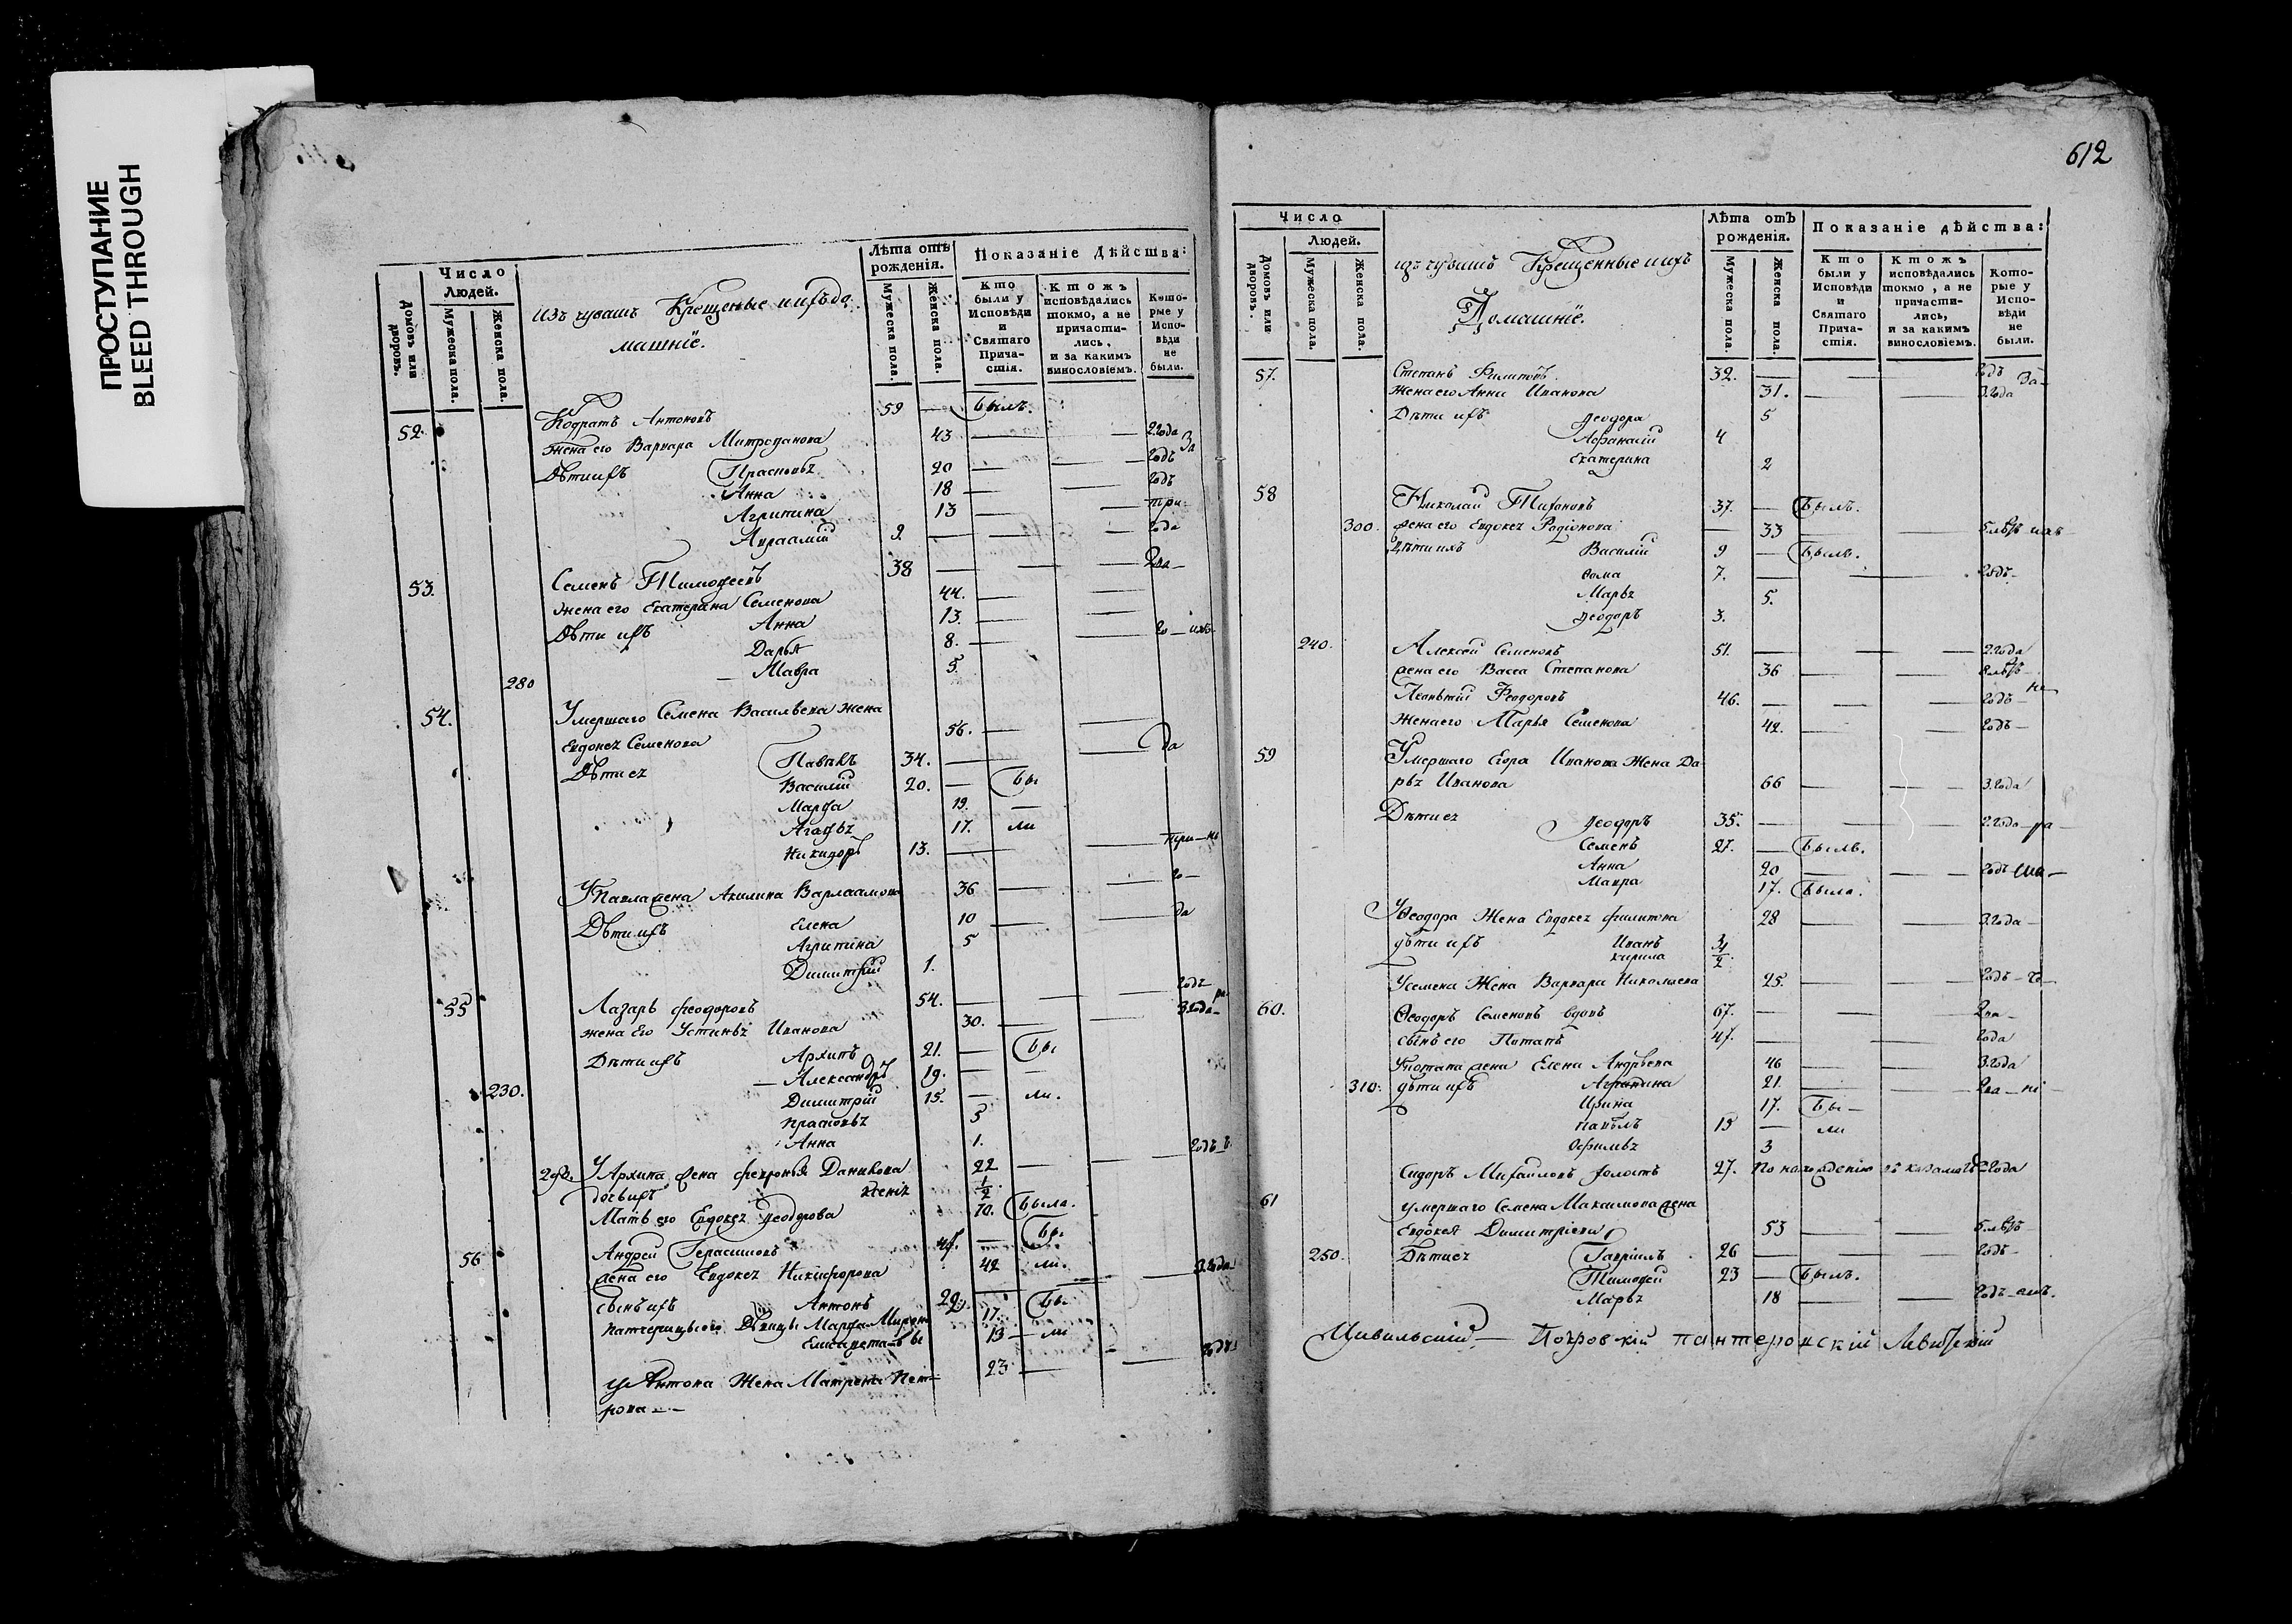 ПРОСТУПАНИЕ
BLEED THROUGH
612
Число
Людей.
Домовъ или дворовъ.
Мужеска пола.
Женска пола.
Изъ чувашъ Крещеные и ихъ до
машніе.
Лѣта отъ рожденія.
Мужеска пола.
Женска пола.
Показаніе дѣйства:
Кто были у Исповѣди и Святаго Причастія.
Ктожъ исповѣдались токмо, а не причастились, и за какимъ винословіемъ.
Которые у Исповѣди не были.
52. Кодратъ Антоновъ 59 — былъ.
жена его Варвара Митрофанова 43 — — 2 года
Дѣти ихъ Прасковьѧ 20 — — годъ
Анна 18 — — годъ
Агрипина 13 — — три
Авраамій 9 — — года
53. Семенъ Тимофеевъ 38 — — два
жена его Екатерина Семенова 44. —
Дѣти ихъ Анна 13. —
Дарья 8. —
280 Мавра 5.
54. Умершаго Семена Васильева жена
Евдокеѧ Семенова 56. —
Дѣти еѧ Павелъ 34. — да
Василій 20. — бы
Марфа 19. —
Агафьѧ 17. ли
Никифоръ 13. —
У Павла жена Акилина Варлаамова 36 —
Дѣти ихъ Елена 10 — да
Агрипина 5
Димитрій 1.
55 Лазарь Феодоровъ 54. — годъ
жена его Устиньѧ Иванова 30. — 3 года
Дѣти ихъ Архипъ 21. — бы
Александръ 19. —
230. Димитрій 15. — ли.
Прасковьѧ 3
Анна 1.
290. У Архипа жена Февронья Данилова 22 — годъ
дочь ихъ Ксеніѧ 1/2
Мать его Евдокеѧ Феодорова 70. была.
56 Андрей Герасимовъ 47. — бы
жена его Евдокеѧ Никифорова 42 ли.
сынъ ихъ Антонъ 22. — 3 года
Девицы Марфа 17. бы
Елисаветъ 13 — ли
У Антона жена Матрена Пет-
рова 23 — годъ
Число
Людей.
Домовъ или дворовъ.
Мужеска пола.
Женска пола.
изъ чувашъ Крещенные и ихъ
Домашніе.
Лѣта отъ рожденія.
Мужеска пола.
Женска пола.
Показаніе дѣйства:
Кто были у Исповѣди и Святаго Причастія.
Ктожъ исповѣдались токмо, а не причастились, и за какимъ винословіемъ.
Которые у Исповѣди не были.
57. Степанъ Филиповъ 32. — — годъ За-
жена его Анна Иванова 31. — — 3 года
Дѣти ихъ Феодора 5
Афанасій 4
Екатерина 2
58 Николай Тихоновъ 37. — былъ.
300. жена его Евдокеѧ Родіонова — 33 5 лѣтъ
Дѣти ихъ Василій 9 — былъ.
Фома 7. — — годъ
Марьѧ 5.
Феодоръ 3.
240. Алексей Семеновъ 51. — — 2 года
жена его Васса Степанова 36 — — 8 лѣтъ
Леонтій Феодоровъ 46. — — годъ
жена его Марья Семенова 42. — годъ
59 Умершаго Егора Иванова жена Да
рьѧ Иванова 66 — — 3 года
Дѣти еѧ Феодоръ 35. — — 2 года
Семенъ 27. — былъ.
Анна 20 — — годъ
Мавра 17. была.
У Феодора жена Евдокеѧ Филипова 28 — — 3 года
дѣти ихъ Иванъ 3
Кирила 1/2
У Семена жена Варвара Николаева 25. — — годъ
60. Феодоръ Семеновъ вдовъ 67. — — два
сынъ его Потапъ 47. — — года
У Потапа жена Елена Андрѣева 46 — 3 года
310. дѣти ихъ Агрипина 21. — два
Ирина 17. бы —
Павелъ 15 — ли
Офимьѧ 3
Сидоръ Михайловъ холостъ 27. По нахожденію въ 2 года
61 умершаго Семена Максимова жена
Евдокея Димитріева 53 — — 5 лѣтъ
250. Дѣти еѧ Гавріилъ 26 — — годъ
Тимофей 23 — былъ.
Марьѧ 18 — — годъ
Цивильскій — Покровскій